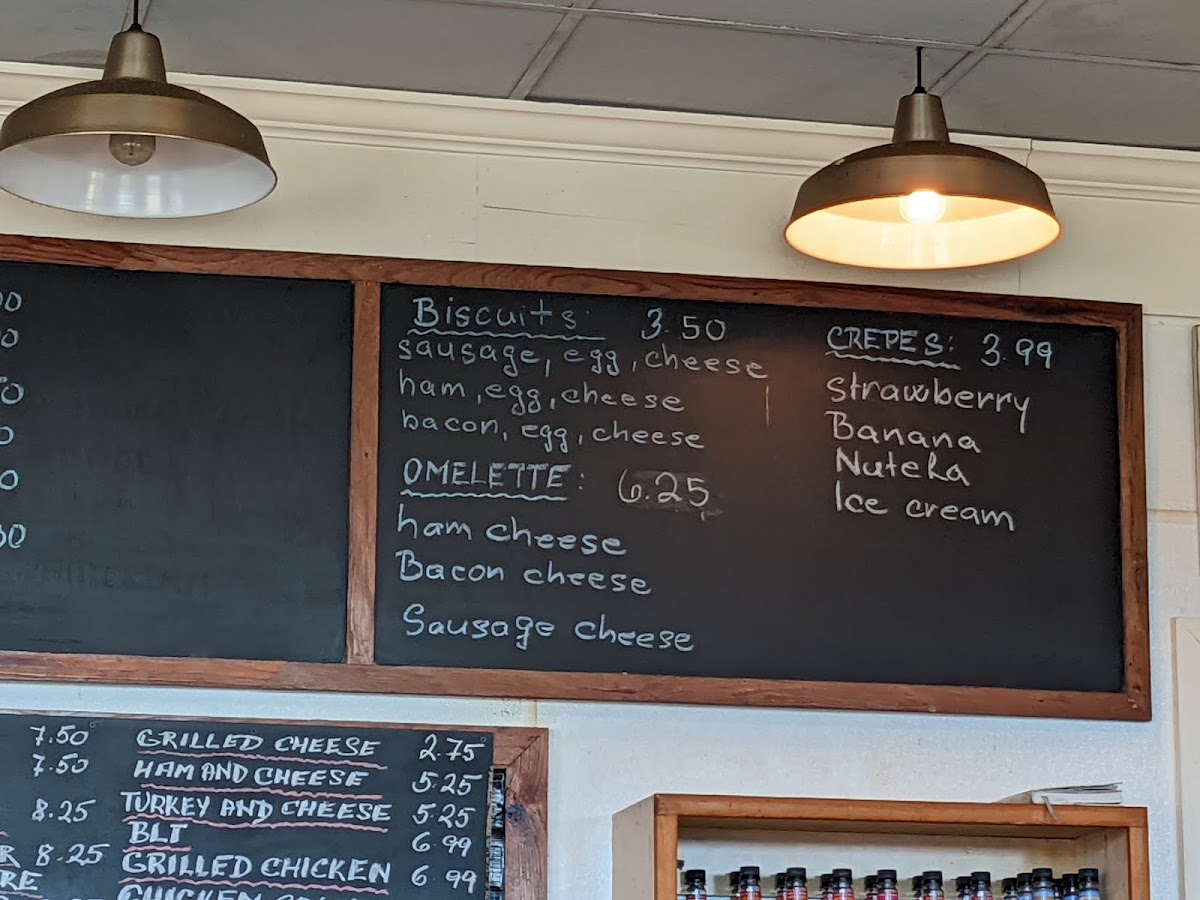 Biscuits 3.50
sausage, egg, cheese
ham, egg, cheese
bacon, egg, cheese
OMELETTE: 6.25
ham cheese
Bacon cheese
Sausage cheese
CREPES: 3.99
strawberry
Banana
Nutella
Ice cream
7.50
7.50
8.25
8.25
GRILLED CHEESE 2.75
HAM AND CHEESE 5.25
TURKEY AND CHEESE 5.25
BLT 6.99
GRILLED CHICKEN 6 99
CHICKEN